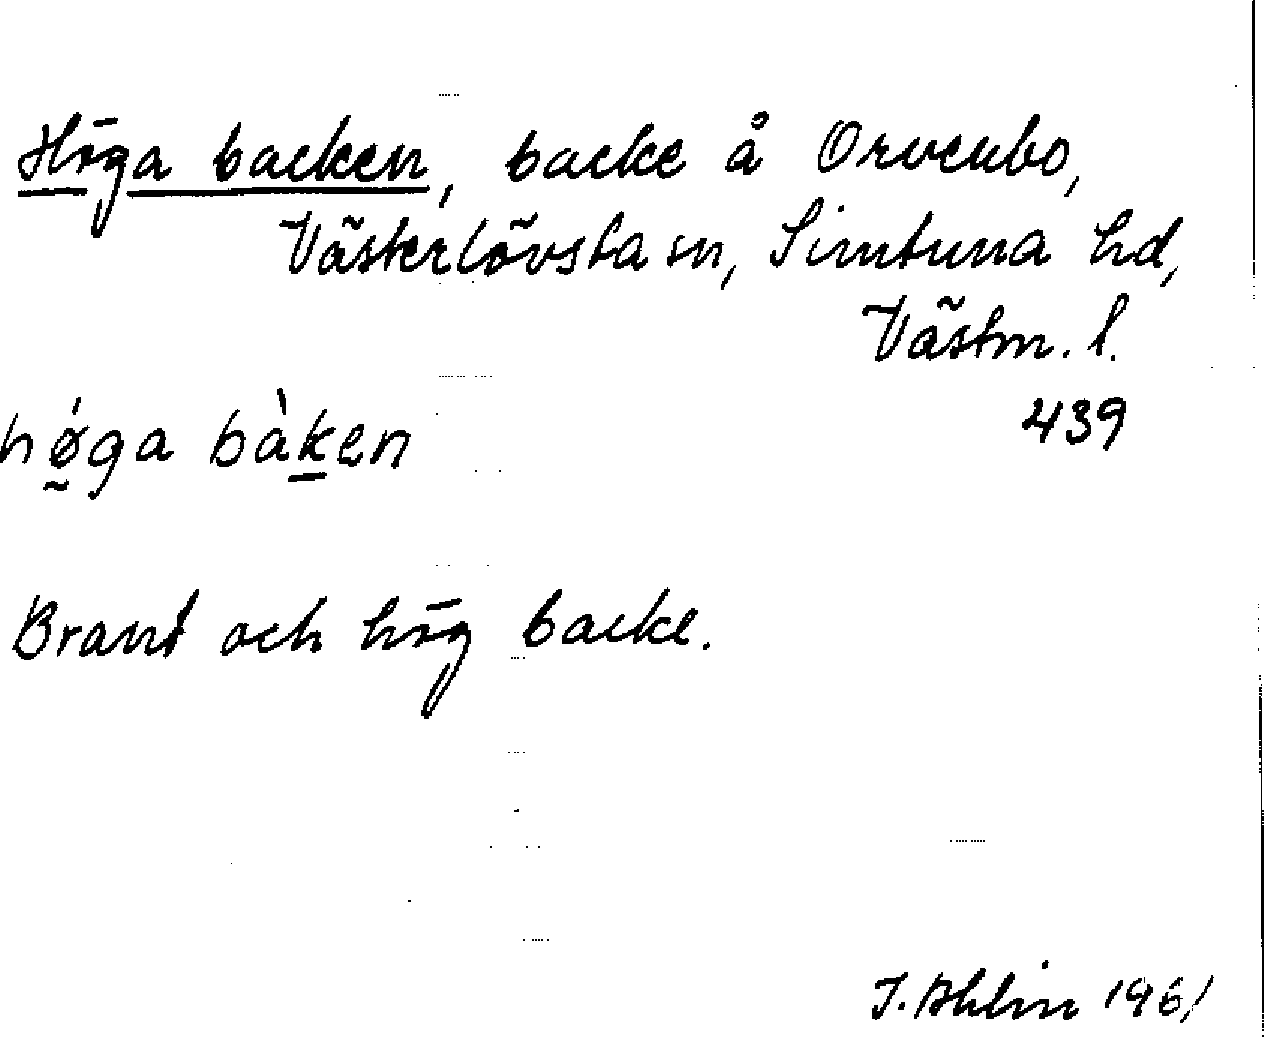 Höga backen, backe å Orvenbo,
Västerlövsta sn, Simtuna hd,
Västm. l.
439
hǿ̰ga bàk̲en
Brant och hög backe.
J. Ahlin 1961